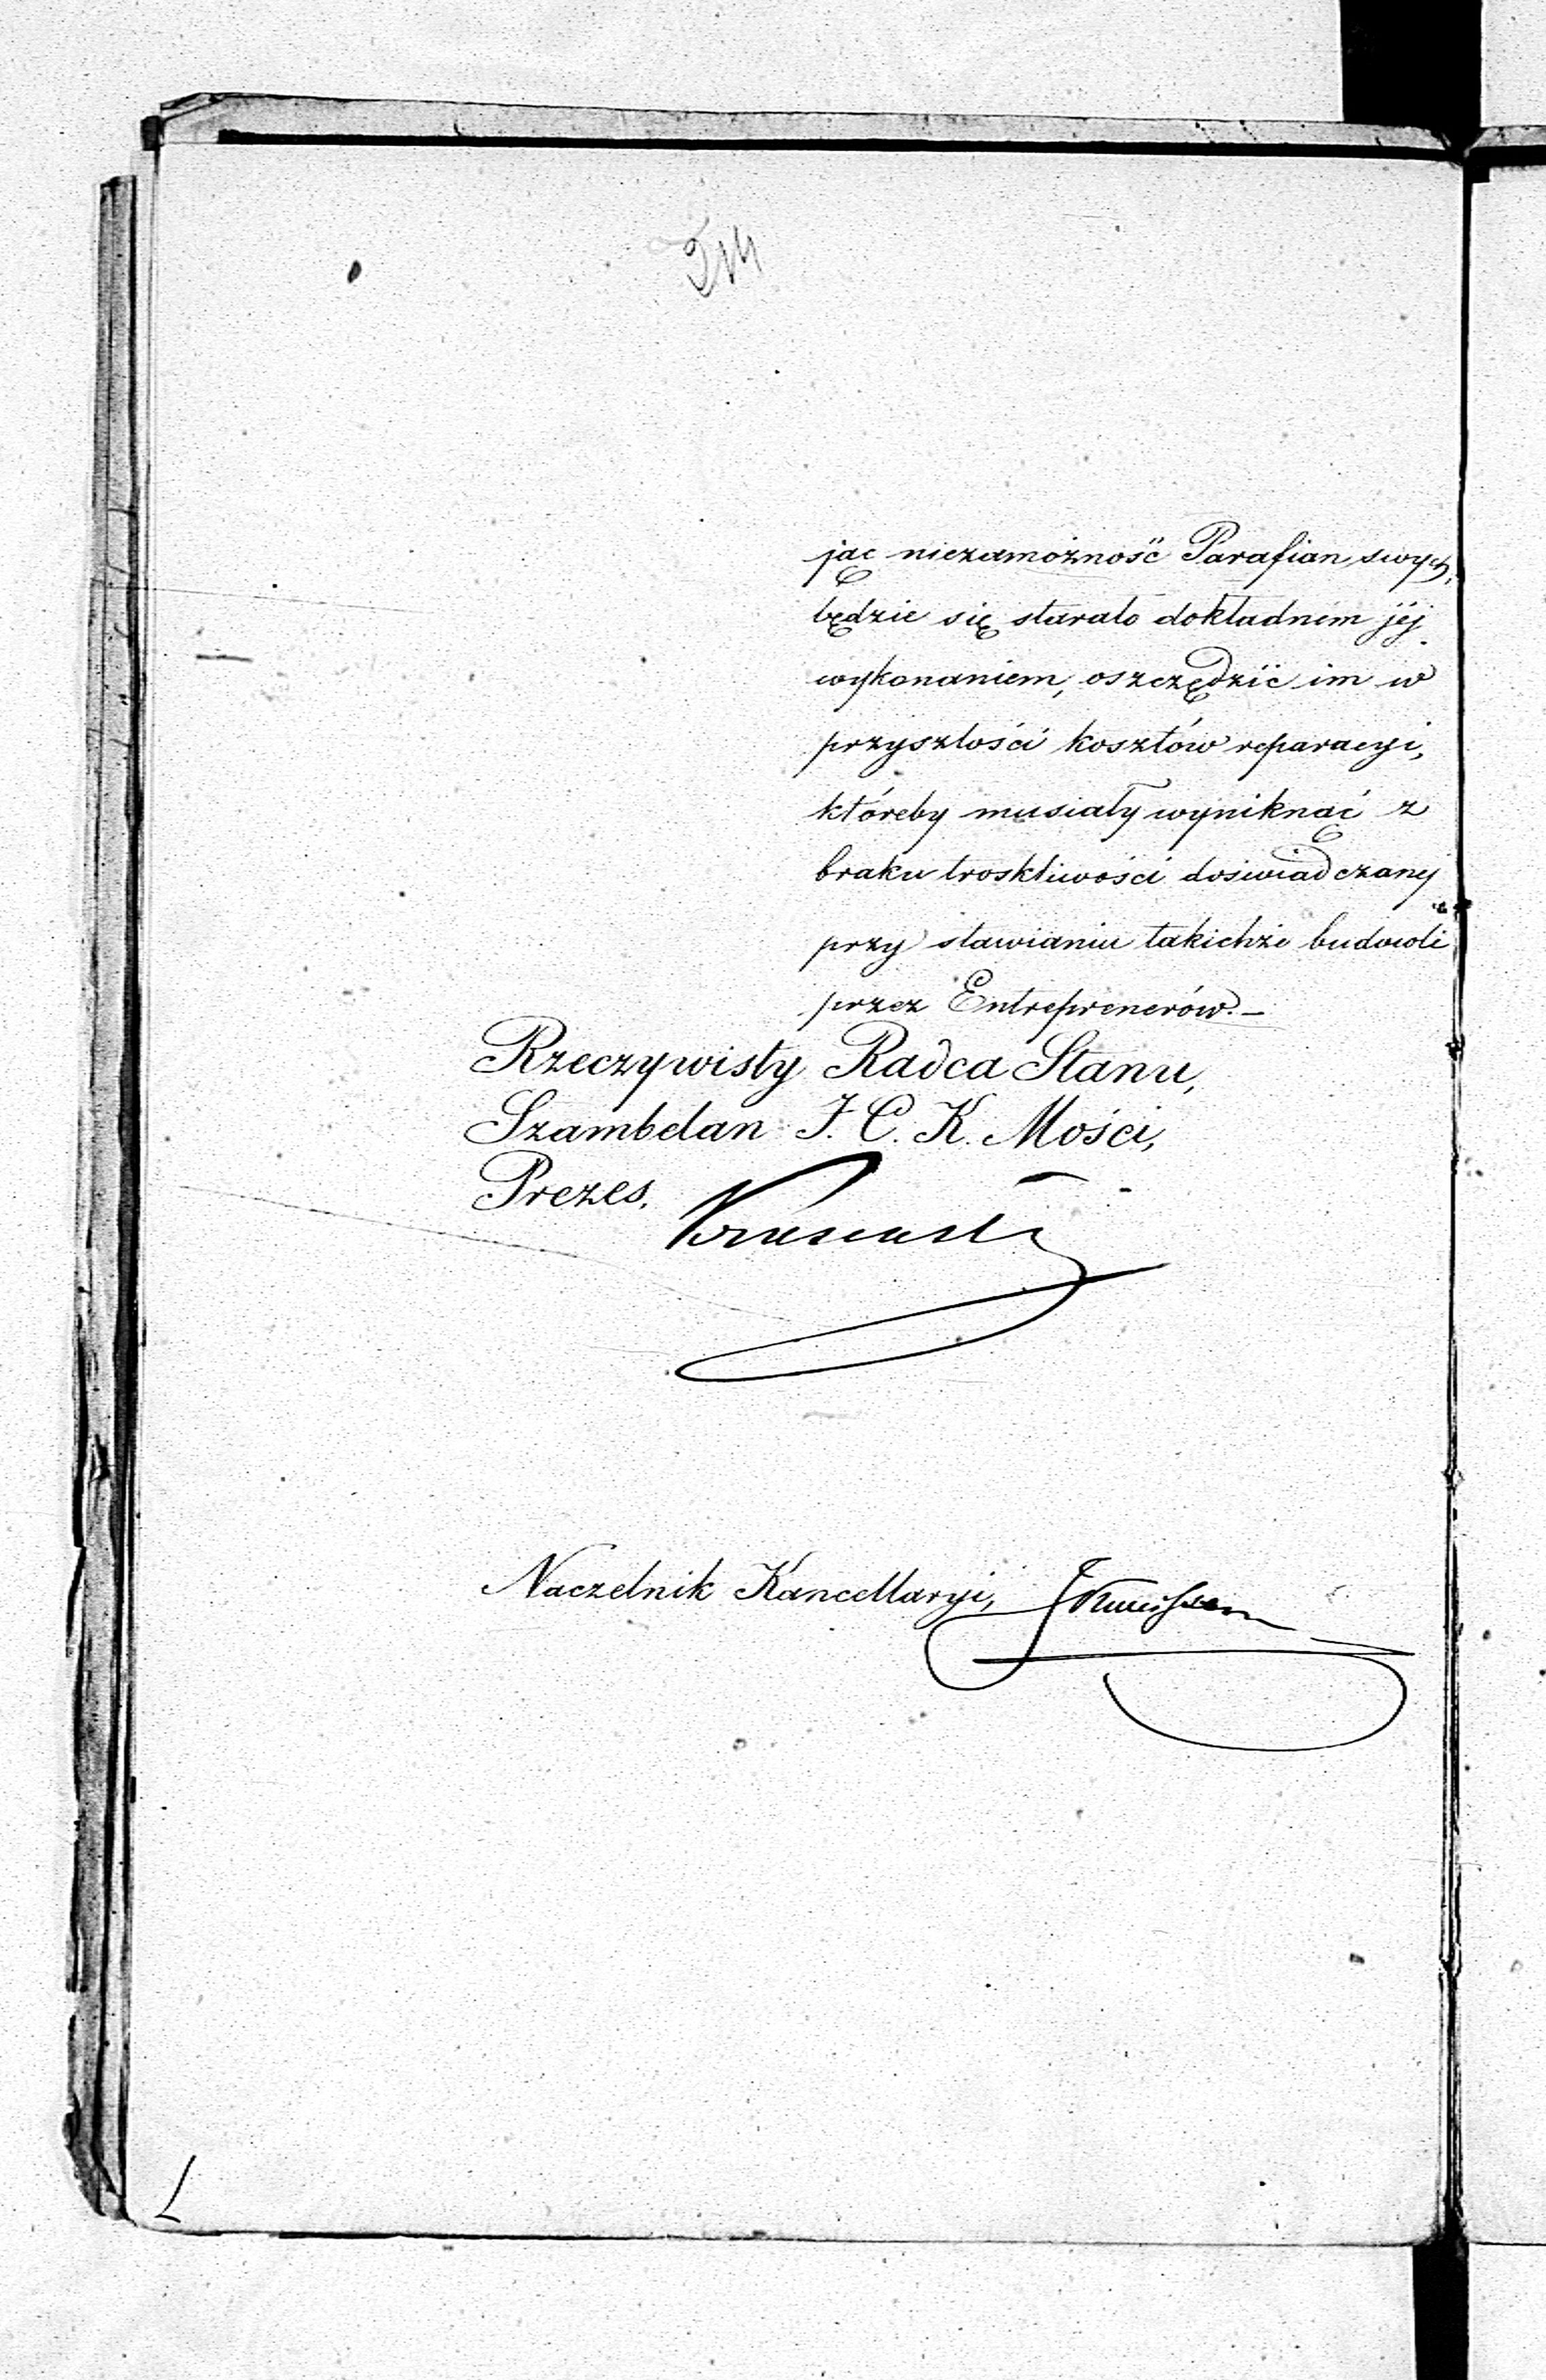 214
jąc niezamożność Parafian swych,
będzie się starało dokładnem jéj
wykonaniem, oszczędzić im w
przyszłości kosztów reparacyi,
któreby musiały wyniknąć z
braku troskliwości doświadczanej
przy stawianiu takichże budowli
przez Entreprenerów. –
Rzeczywisty Radca Stanu,
Szambelan J. C. K. Mości,
Prezes.
Naczelnik Kancellaryi,